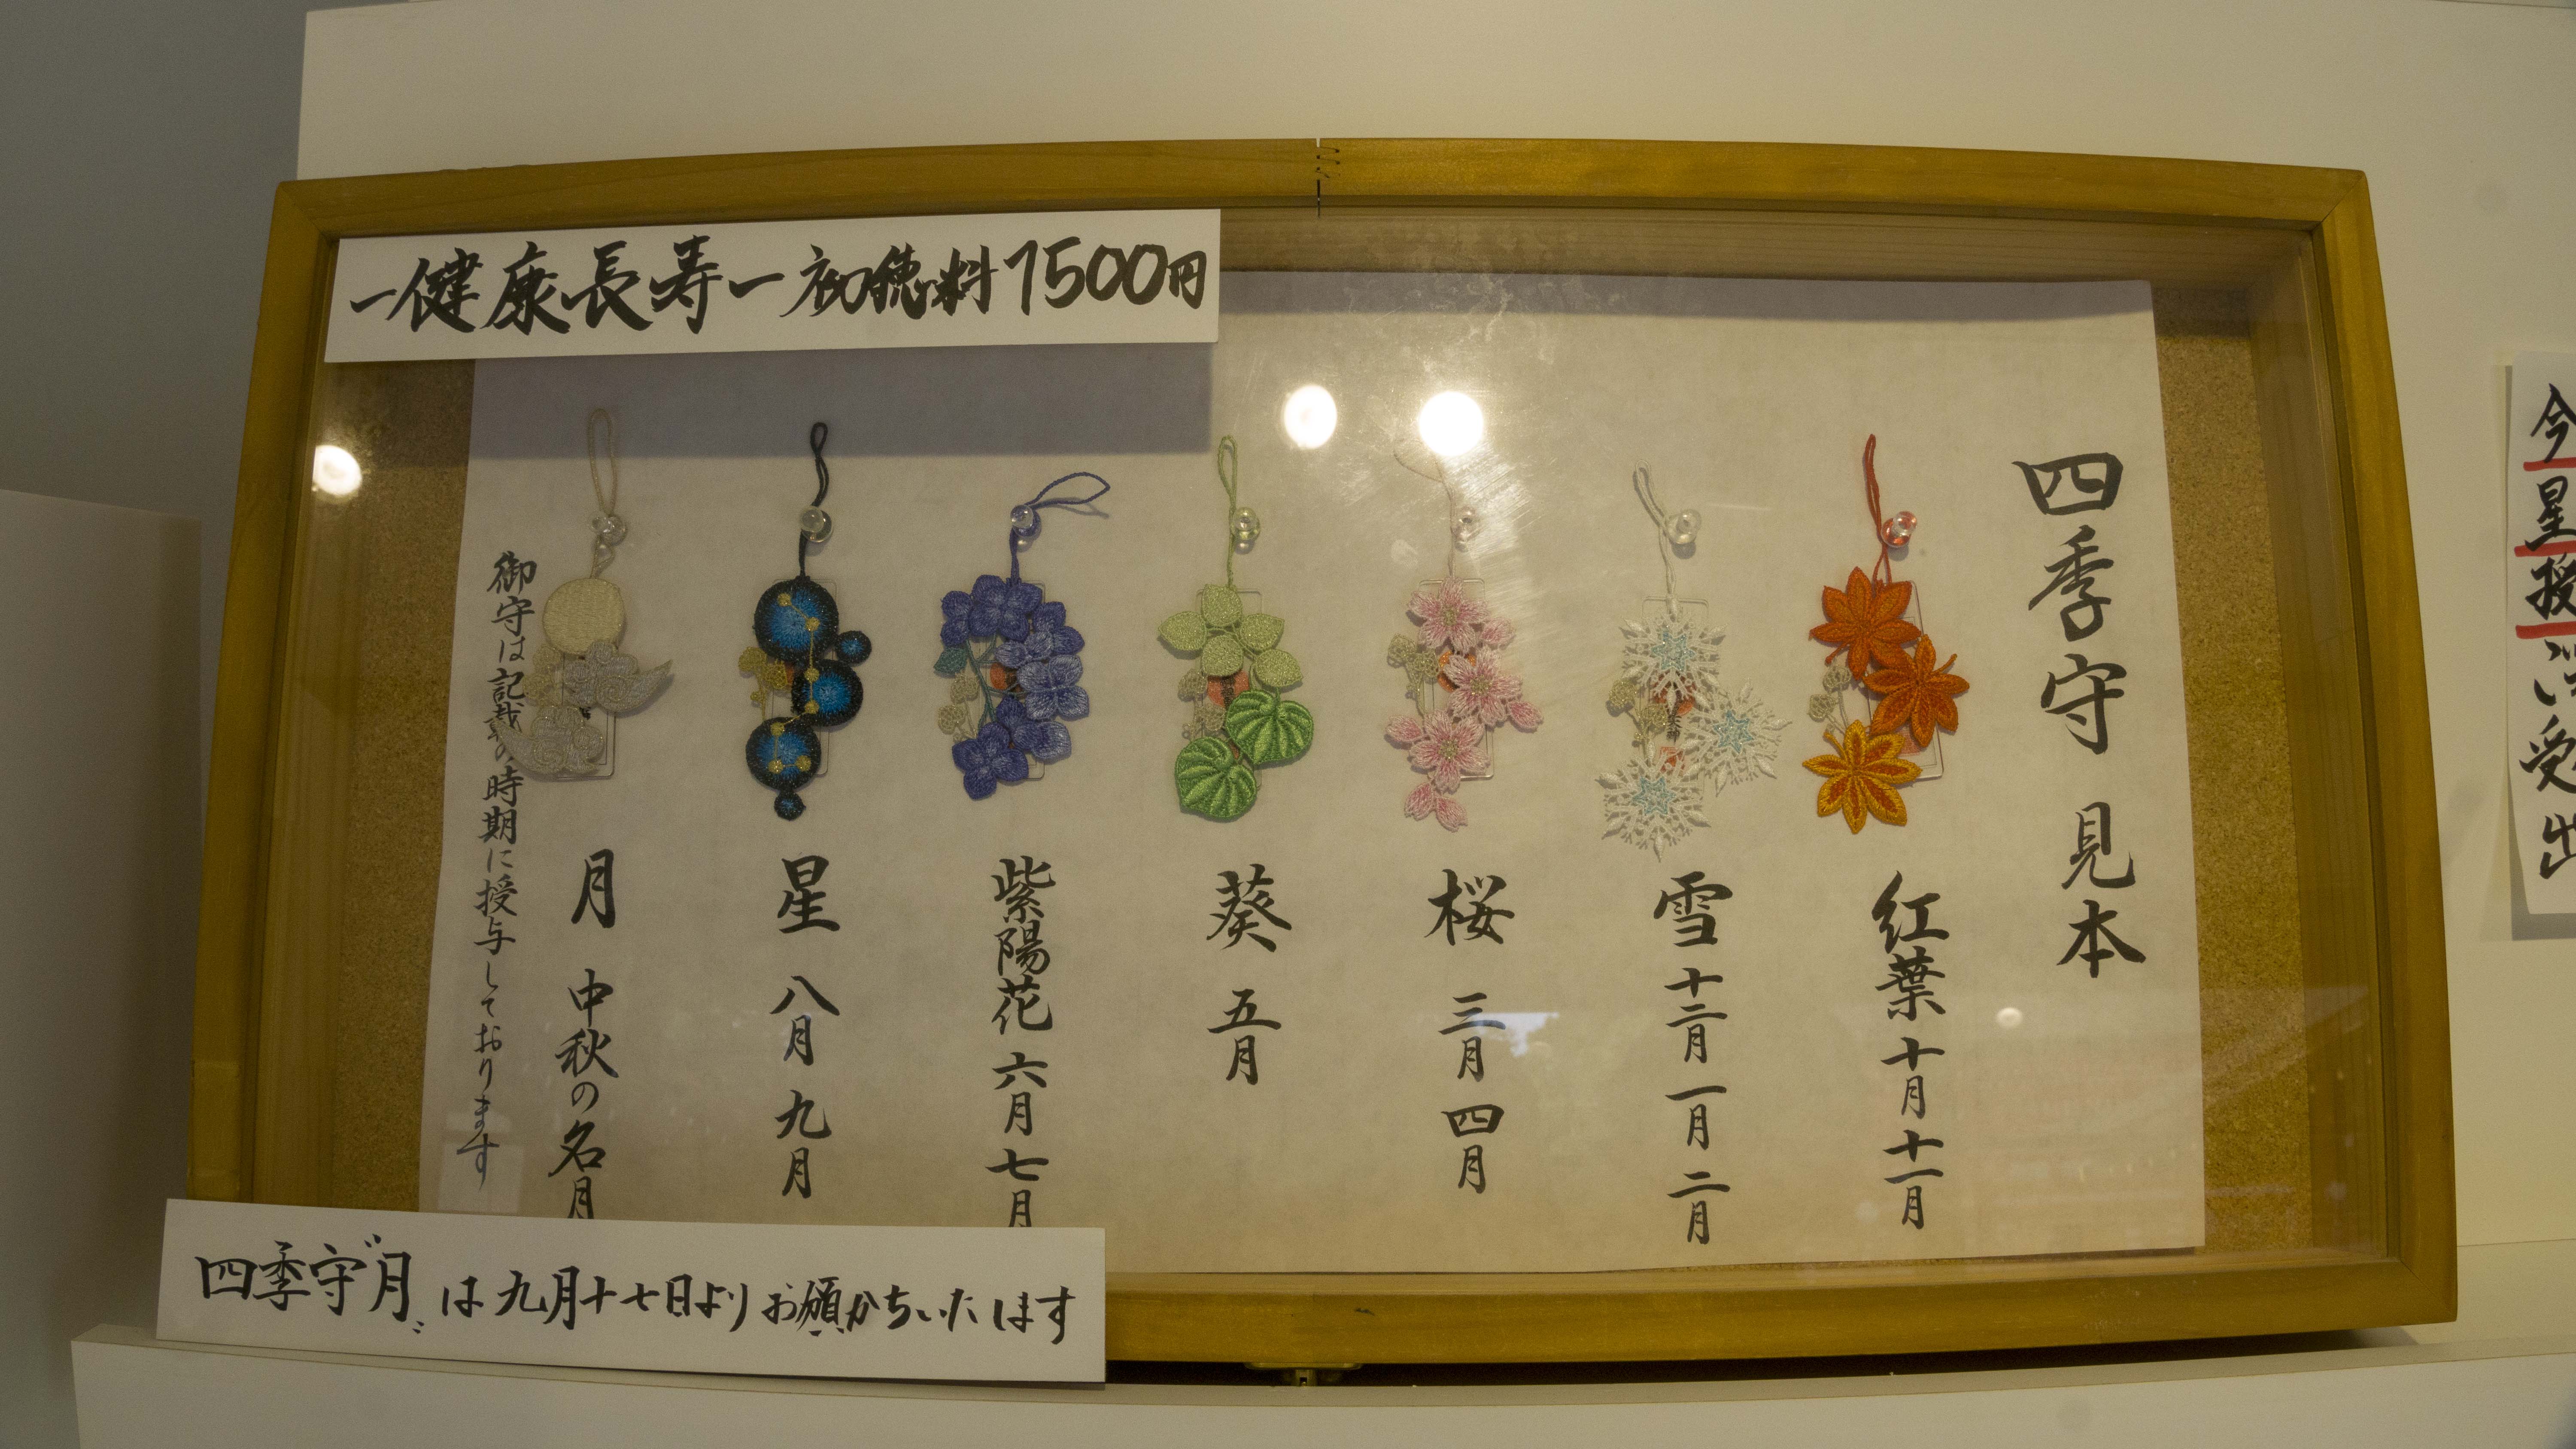 一健康長寿一初穂料1500円
四季守 見本
紅葉 十月 十一月
雪 十二月 一月 二月
桜 三月 四月
葵 五月
紫陽花 六月 七月
星 八月 九月
月 中秋の名月
御守は記載の時期に授与しております
四季守"月"は九月十七日よりお頒かちいたします
今
星授
受
出